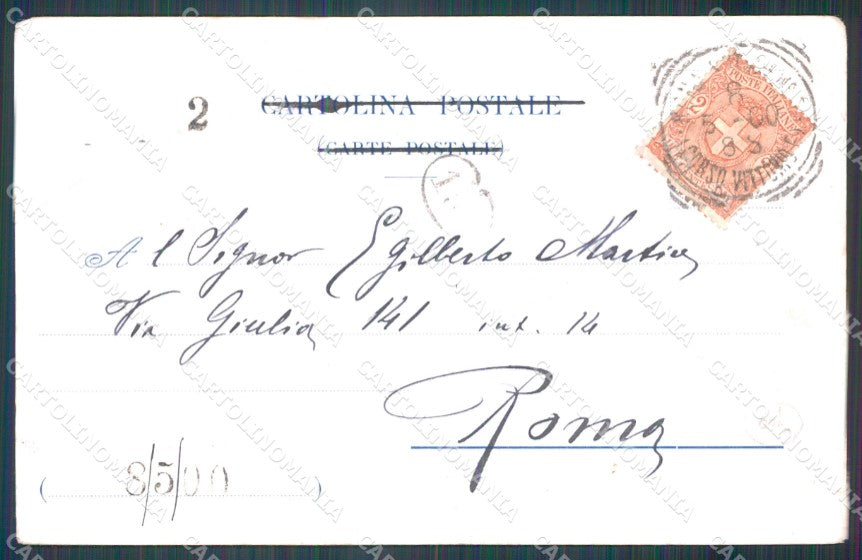 2
CARTOLINA POSTALE
CARTE POSTALE
POSTE ITALIANE
2
CORSO VITTORIO E
Al Signor Egilberto Martire
Via Giulia 141 int. 14
Roma
( 8/5/00 )
CARTOLINOMANIA